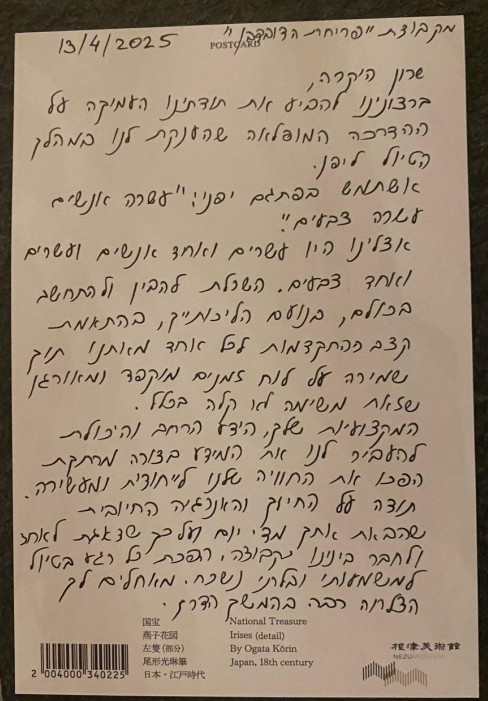 מקבוצת "פריחת הדובדבן"
13/4/2025
POSTCARD
שרון היקרה,
ברצונינו להביע את תודתינו העמוקה על
ההדרכה המופלאה שהענקת לנו במהלך
הטיול ליפן.
אשתמש בפתגם יפני: "עשרה אנשים
עשרה צבעים".
אצלינו היו עשרים ואחד אנשים ועשרים
ואחד צבעים. השכלת להבין ולהתחשב
בכולם, בנועם הליכותייך, בהתאמת
קצב ההתקדמות לכל אחד מאתנו תוך
שמירה על לוח זמנים מוקפד ומאורגן
שזאת משימה לא קלה בכלל.
המקצועיות שלך, הידע הרחב והיכולת
להעביר לנו את המידע בצורה מרתקת
הפכו את החוויה שלנו לייחודית ומעשירה.
תודה על החיוך והאנרגיה החיובית
שהבאת אתך מדי יום ועל כך שדאגת לאחד
ולחבר בינינו כקבוצה, הפכת כל רגע בטיול
למשמעותי ובלתי נשכח. מאחלים לך
הצלחה רבה בהמשך הדרך.
国宝
燕子花図
左隻(部分)
尾形光琳筆
日本・江戸時代
National Treasure
Irises (detail)
By Ogata Kōrin
Japan, 18th century
根津美術館
NEZUMUSEUM
2 004000 340225